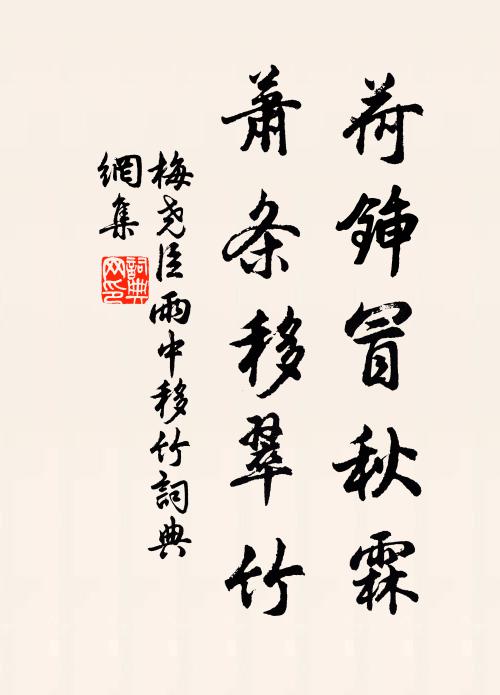 荷鍤冒秋霖
蕭条移翠竹
梅尧臣雨中移竹詞典
網集
詞典
网印